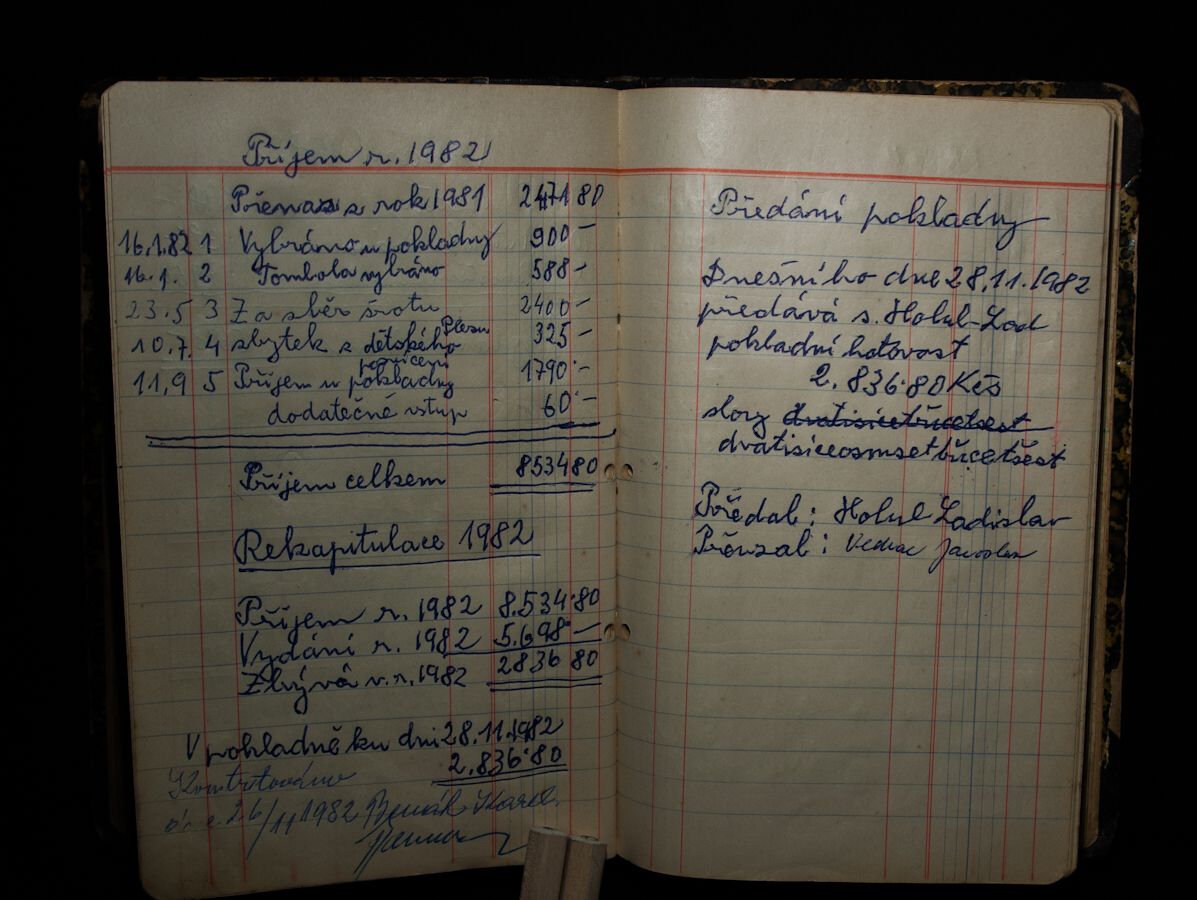 Příjem r. 1982
Přenos z rok 1981 2471 80
16.1.82 1 Vybráno u pokladny 900 –
16.1. 2 Tombola vybráno 588 –
23.5 3 Za sběr šrotu 2400 –
10.7. 4 zbytek z dětského Plesu 325 –
11,9 5 Příjem u pokladny posvícení 1790·–
dodatečné vstup 60·–
Příjem celkem 8534 80
Rekapitulace 1982
Příjem r. 1982 8.534·80
Vydání r. 1982 5.698·–
Zbývá v.r. 1982 2836 80
V pokladně ku dni 28.11.1982
2.836·80
Kontrolováno
26/11 1982 Karel
Předání pokladny
Dnešního dne 28.11.1982
předává s. Holub Lad
pokladní hotovost
2.836·80 Kčs
slovy dvatisícetřicetšest
dvatisíceosmsettřicetšest
Předal: Holub Ladislav
Převzal: Jaroslav